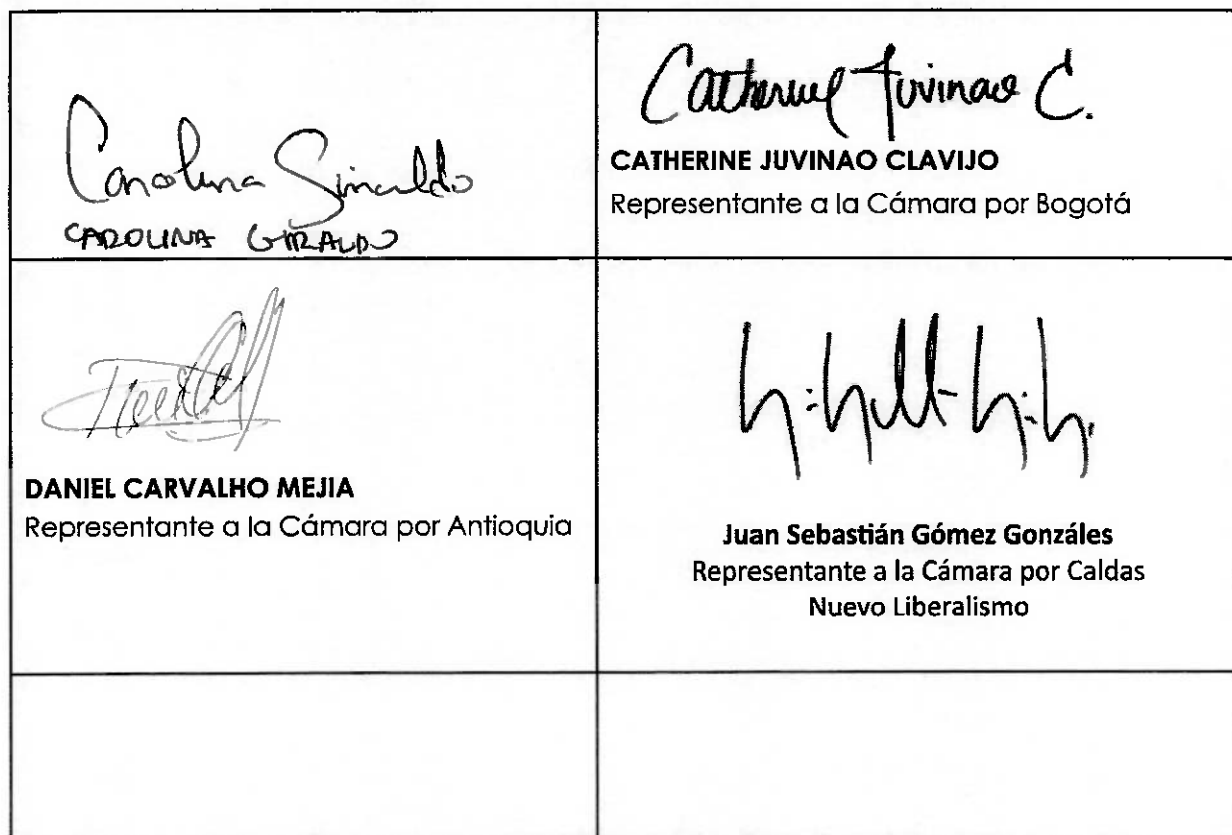 Carolina Giraldo
CAROLINA GIRALDO
Catherine Juvinao C.
CATHERINE JUVINAO CLAVIJO
Representante a la Cámara por Bogotá
DANIEL CARVALHO MEJIA
Representante a la Cámara por Antioquia
Juan Sebastián Gómez Gonzáles
Representante a la Cámara por Caldas
Nuevo Liberalismo